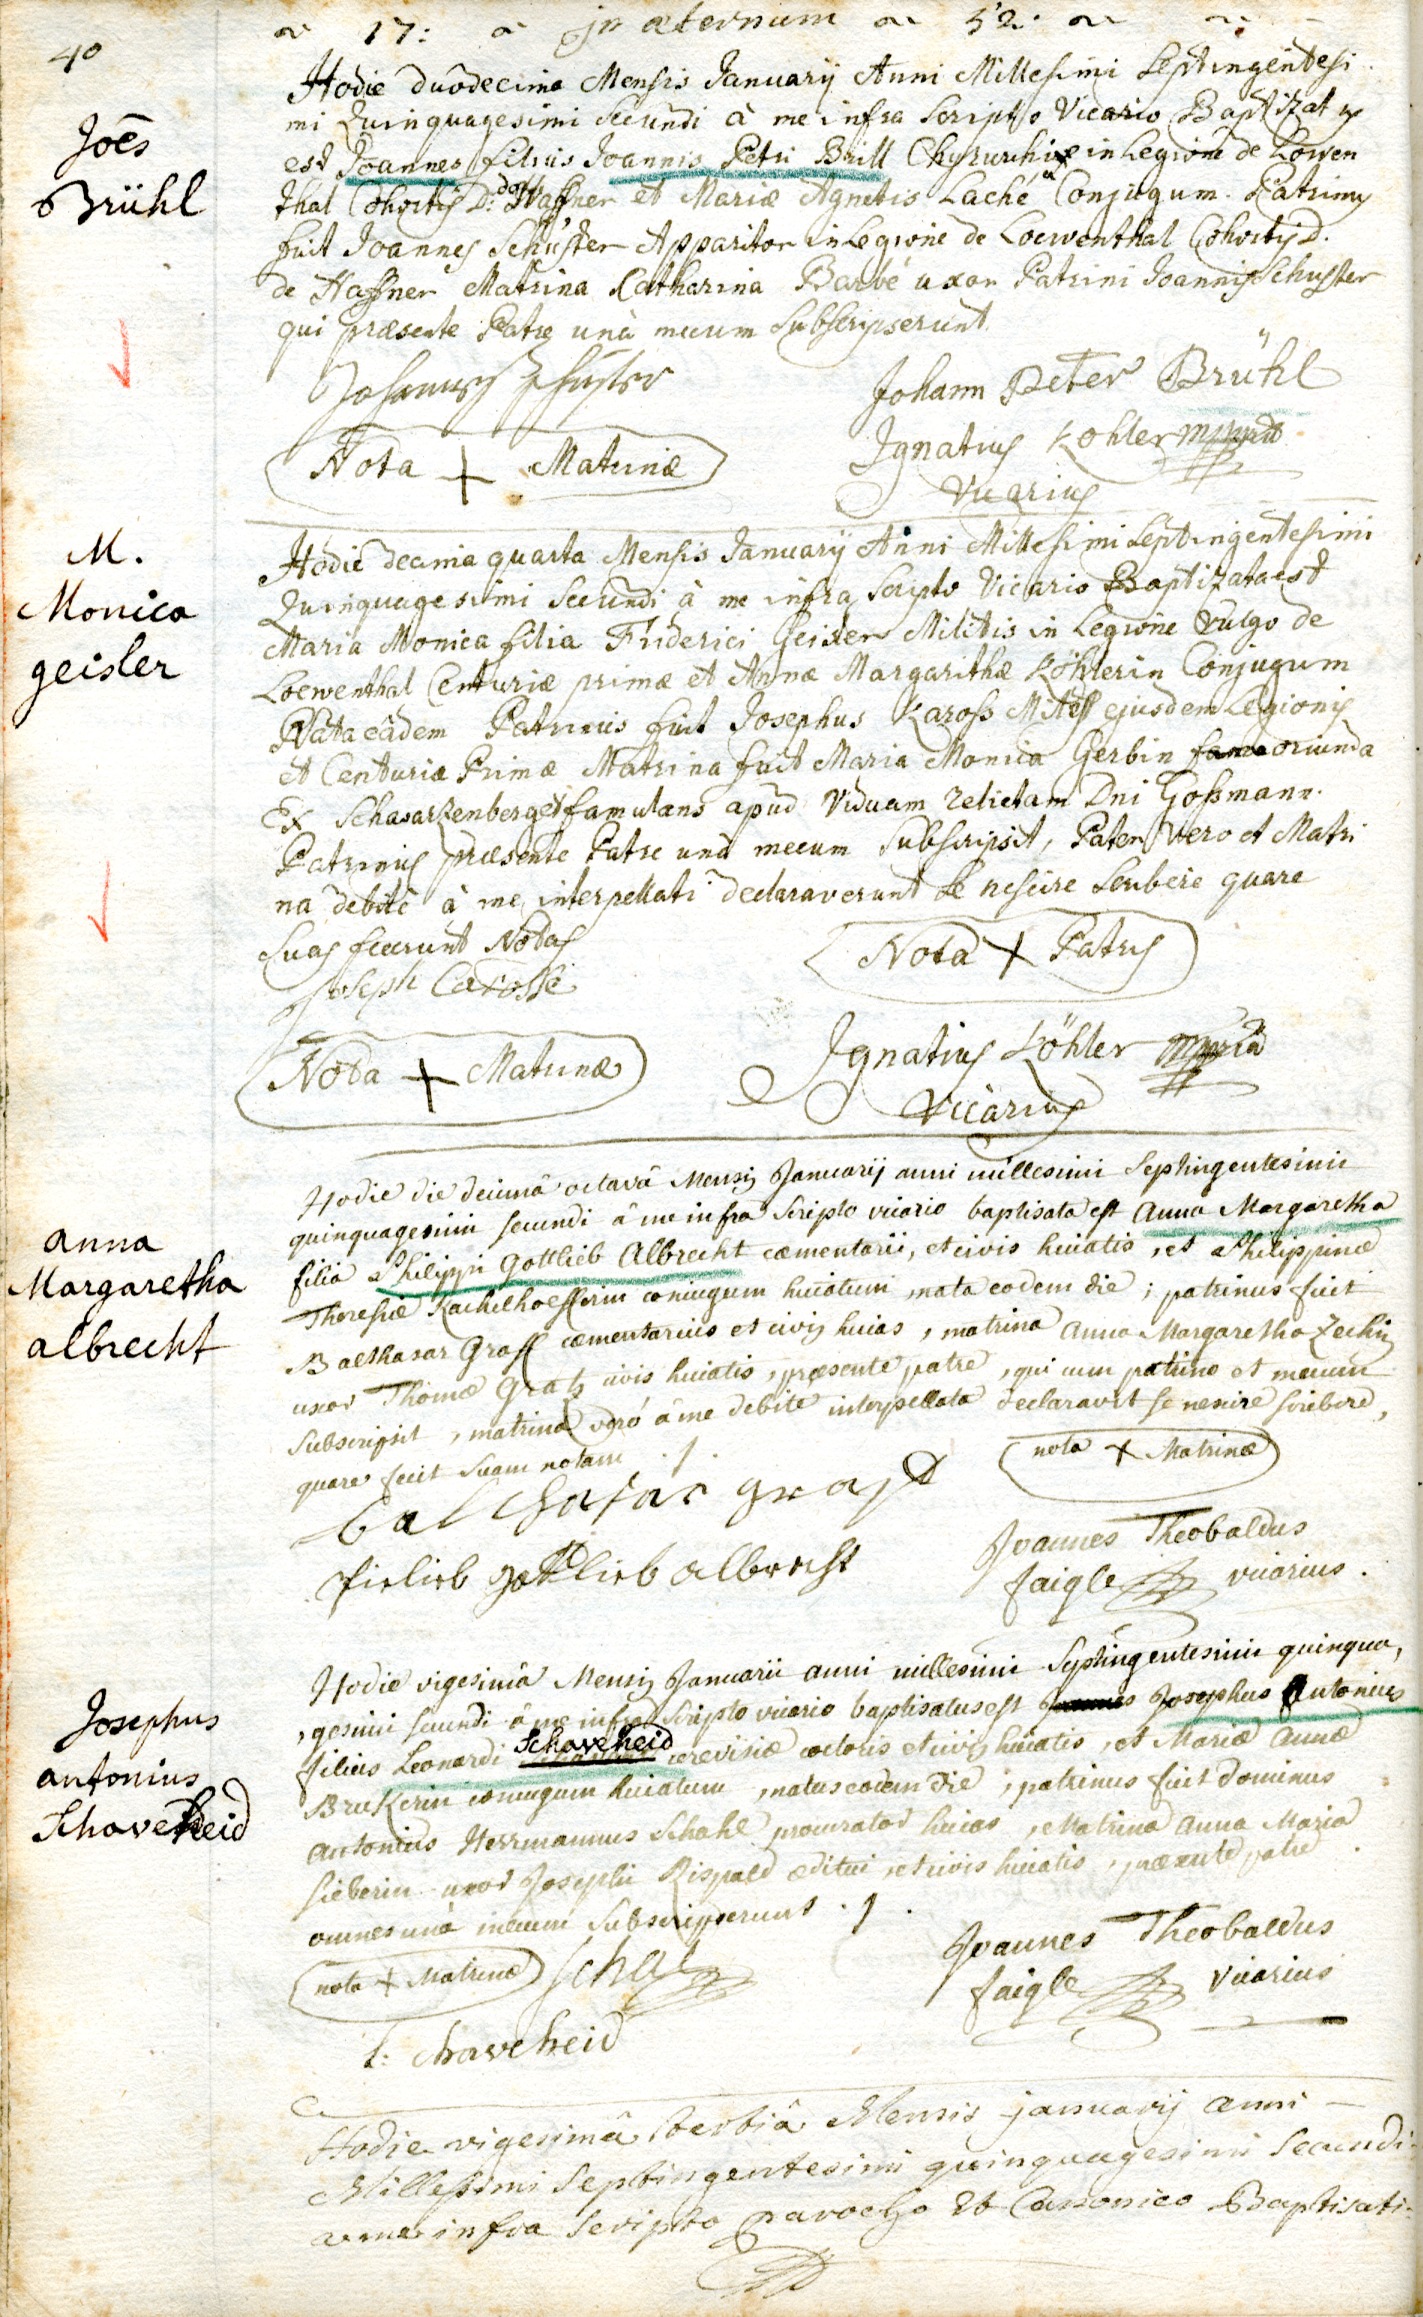 40
17: in æternum 52:
Joẽs
Brühl
Hodie duodecima Mensis Januarÿ Anni Millesimi Septingentesi
mi Quinquagesimi Secundi à me infra Scripto Vicario Baptizatus
est Joannes filius Joannis Petri Brill Chyrurhi in Legione de Lowen
thal Cohortis D: de Haffner et Mariæ Agnetis Laché Conjugum. Patrinus
fuit Joannes Schuster Apparitor in Legione de Loewenthal Cohortis D.
de Haffner Matrina Catharina Barbé uxor Patrini Joannis Schuster
qui præsente Patre unà mecum Subscripserunt.
Johannes Schuster
Johann Peter Brühl
Nota + Matrinæ
Ignatius Kohler
Vicarius
M.
Monica
geisler
Hodie decima quarta Mensis Januarÿ Anni Millesimi Septingentesimi
Quinquagesimi Secundi à me infra Scripto Vicario Baptizata est
Maria Monica filia Friderici Geisler Militis in Legione vulgo de
Loewenthal Centuriæ primæ et Annæ Margarithæ Köhlerin Conjugum
Nata eâdem Patrinus fuit Josephus Karoß Miles ejusdem Legionis
et Centuriæ Primæ Matrina fuit Maria Monica Gerbin oriunda
Ex famulans apud Viduam relictam Dni Goßmann.
Patrinus præsente Patre unà mecum Subscripsit, Pater vero et Matri
na debitè à me interpellati declaraverunt se nescire scribere quare
Suas fecerunt Notas
Nota + Patris
Joseph Carosse
Nota + Matrinæ
Ignatius Köhler
Vicarius
anna
Margaretha
albrecht
Hodie die decimâ octavâ Mensis Januarij anni millesimi Septingentesimi
quinquagesimi secundi â me infra Scripto vicario baptisata est Anna Margaretha
filia Philippi Gottlieb Albrecht cæmentarii, et civis huiatis, et Philippinæ
Theresiæ Kachelhoefferin coniugum huiatum, nata eodem die; patrinus fuit
Balthasar Graff cæmentarius et civis huias, matrina Anna Margaretha Zechin
uxor Thomæ Gratz civis huiatis, præsente patre, qui cum patrino et mecum
Subscripsit, matrina verò â me debite interpellata declaravit se nescire scribere,
quare fecit Suam notam.
nota + Matrinæ
balthasar graff
Joannes Theobaldus
faigle vicarius.
filieb gottlieb albrecht
Josephus
antonius
Schaveheid
Hodie vigesimâ Mensis Januarii anni millesimi Septingentesimi quinqua,
,gesimi secundi â me infra Scripto vicario baptisatus est Josephus Antonius
filius Leonardi Schaveheid cerevisiæ coctoris et civis huiatis, et Mariæ Annæ
Brukerin coniugum huiatum, natus eodem die; patrinus fuit dominus
Antonius Herrmannus Schahl procurator huias, Matrina Anna Maria
sieberin uxor Josephi Rispald æditui, et civis huiatis, præsente patre
omnes unà mecum Subscripserunt.
nota + Matrinæ
Schal
Joannes Theobaldus
faigle vicarius
l: chaveheid
Hodie vigesimâ tertiâ Mensis januarij anni
Millessimi Septingentesimi quinquagesimi Secundi
a me infra Scripto parocho et Canonico Baptisati